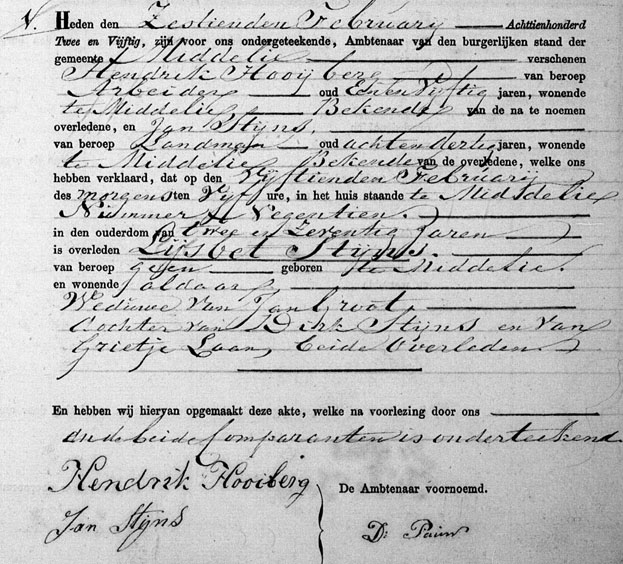 N. Heden den Zestienden February Achttienhonderd
Twee en Vijftig, zijn voor ons ondergeteekende, Ambtenaar van den burgerlijken stand der
gemeente Middelie verschenen
Hendrik Hooijberg van beroep
Arbeider oud Eenen Vyftig jaren, wonende
te Middelie Bekende van de na te noemen
overledene, en Jan Stijns, 
van beroep Landman oud achtendertig jaren, wonende
te Middelie Bekende van de overledene, welke ons
hebben verklaard, dat op den Vijftienden February
des morgens ten Vijf ure, in het huis staande te Middelie
Nummer Negentien.
in den ouderdom van twee en Zeventig Jaren
is overleden Lijsbet Stijns.
van beroep geen geboren te Middelie.
en wonende aldaar
Weduwe van Jan Groot,
dochter van Dirk Stijns en van
Grietje Laan, beide Overleden
En hebben wij hiervan opgemaakt deze akte, welke na voorlezing door ons
en de beide Comparanten is onderteekend.
Hendrik Hooiberg
De Ambtenaar voornoemd.
Jan Stijns
D: Pauw